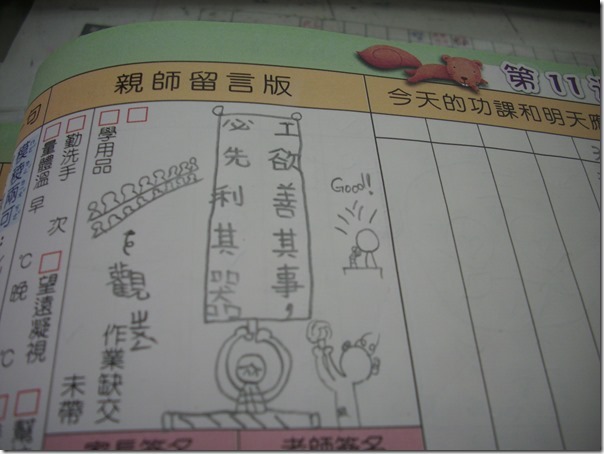 第11
親師留言版
今天的功課和明天應
工欲善其事，
必先利其器
Good!
觀
學用品
作業缺交
未帶
勤洗手 次
望遠凝視
量體溫 早 ℃ 晚 ℃
幫
家長簽名
老師簽名